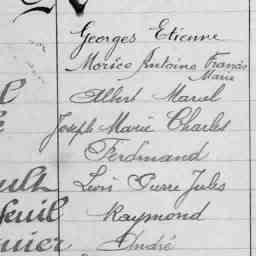 Georges Etienne
Morice Antoine Francis
Marie
Albert Marcel
Joseph Marie Charles
Ferdinand
Léon Pierre Jules
euil Raymond
nier André